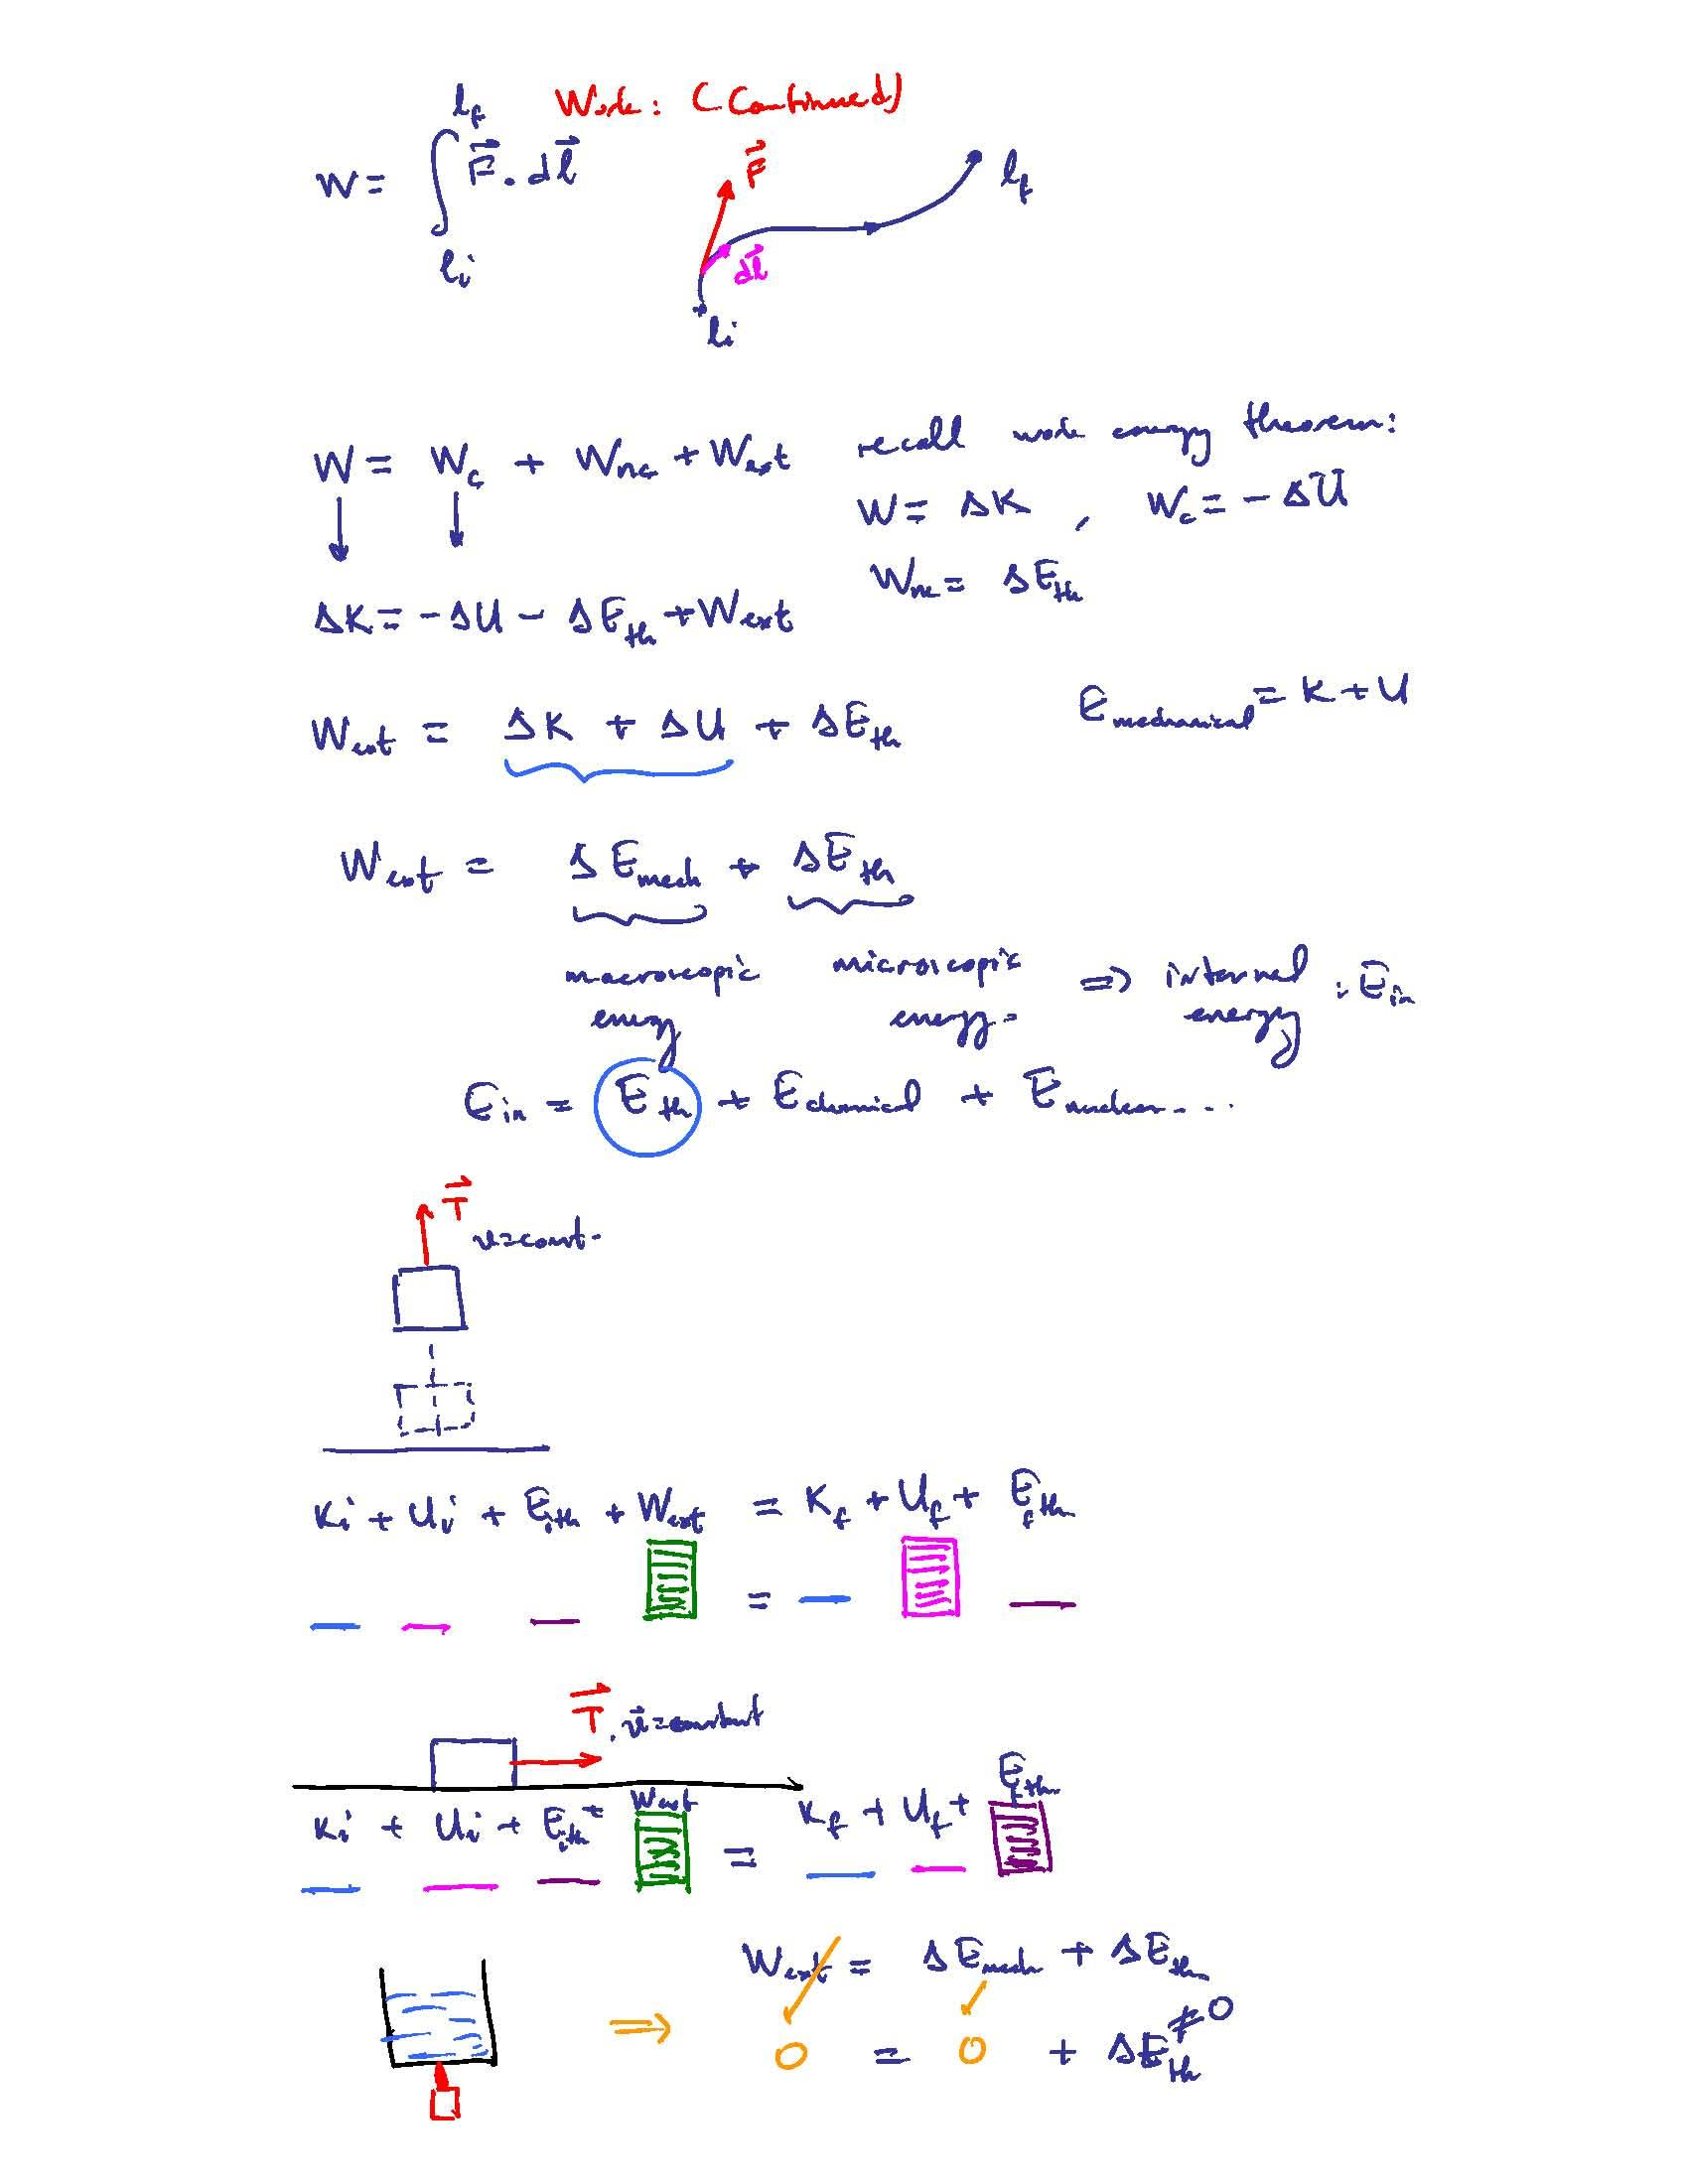 Work: (Continued)
W = ∫_{l_i}^{l_f} F⃗ . dl⃗
F⃗
dl⃗
l_f
l_i
W = W_c + W_nc + W_ext
recall work energy theorem:
W = ΔK , W_c = -ΔU
W_nc = ΔE_th
ΔK = -ΔU - ΔE_th + W_ext
E_mechanical = K + U
W_ext = ΔK + ΔU + ΔE_th
W_ext = ΔE_mech + ΔE_th
macroscopic energy
microscopic energy
⇒ internal energy : E_in
E_in = E_th + E_chemical + E_nuclear ....
T⃗
v = const.
K_i + U_i + E_i,th + W_ext = K_f + U_f + E_f,th
=
T⃗, v⃗ = constant
K_i + U_i + E_i,th + W_ext = K_f + U_f + E_f,th
⇒ W_ext = ΔE_mech + ΔE_th
0 = 0 + ΔE_th ≠ 0